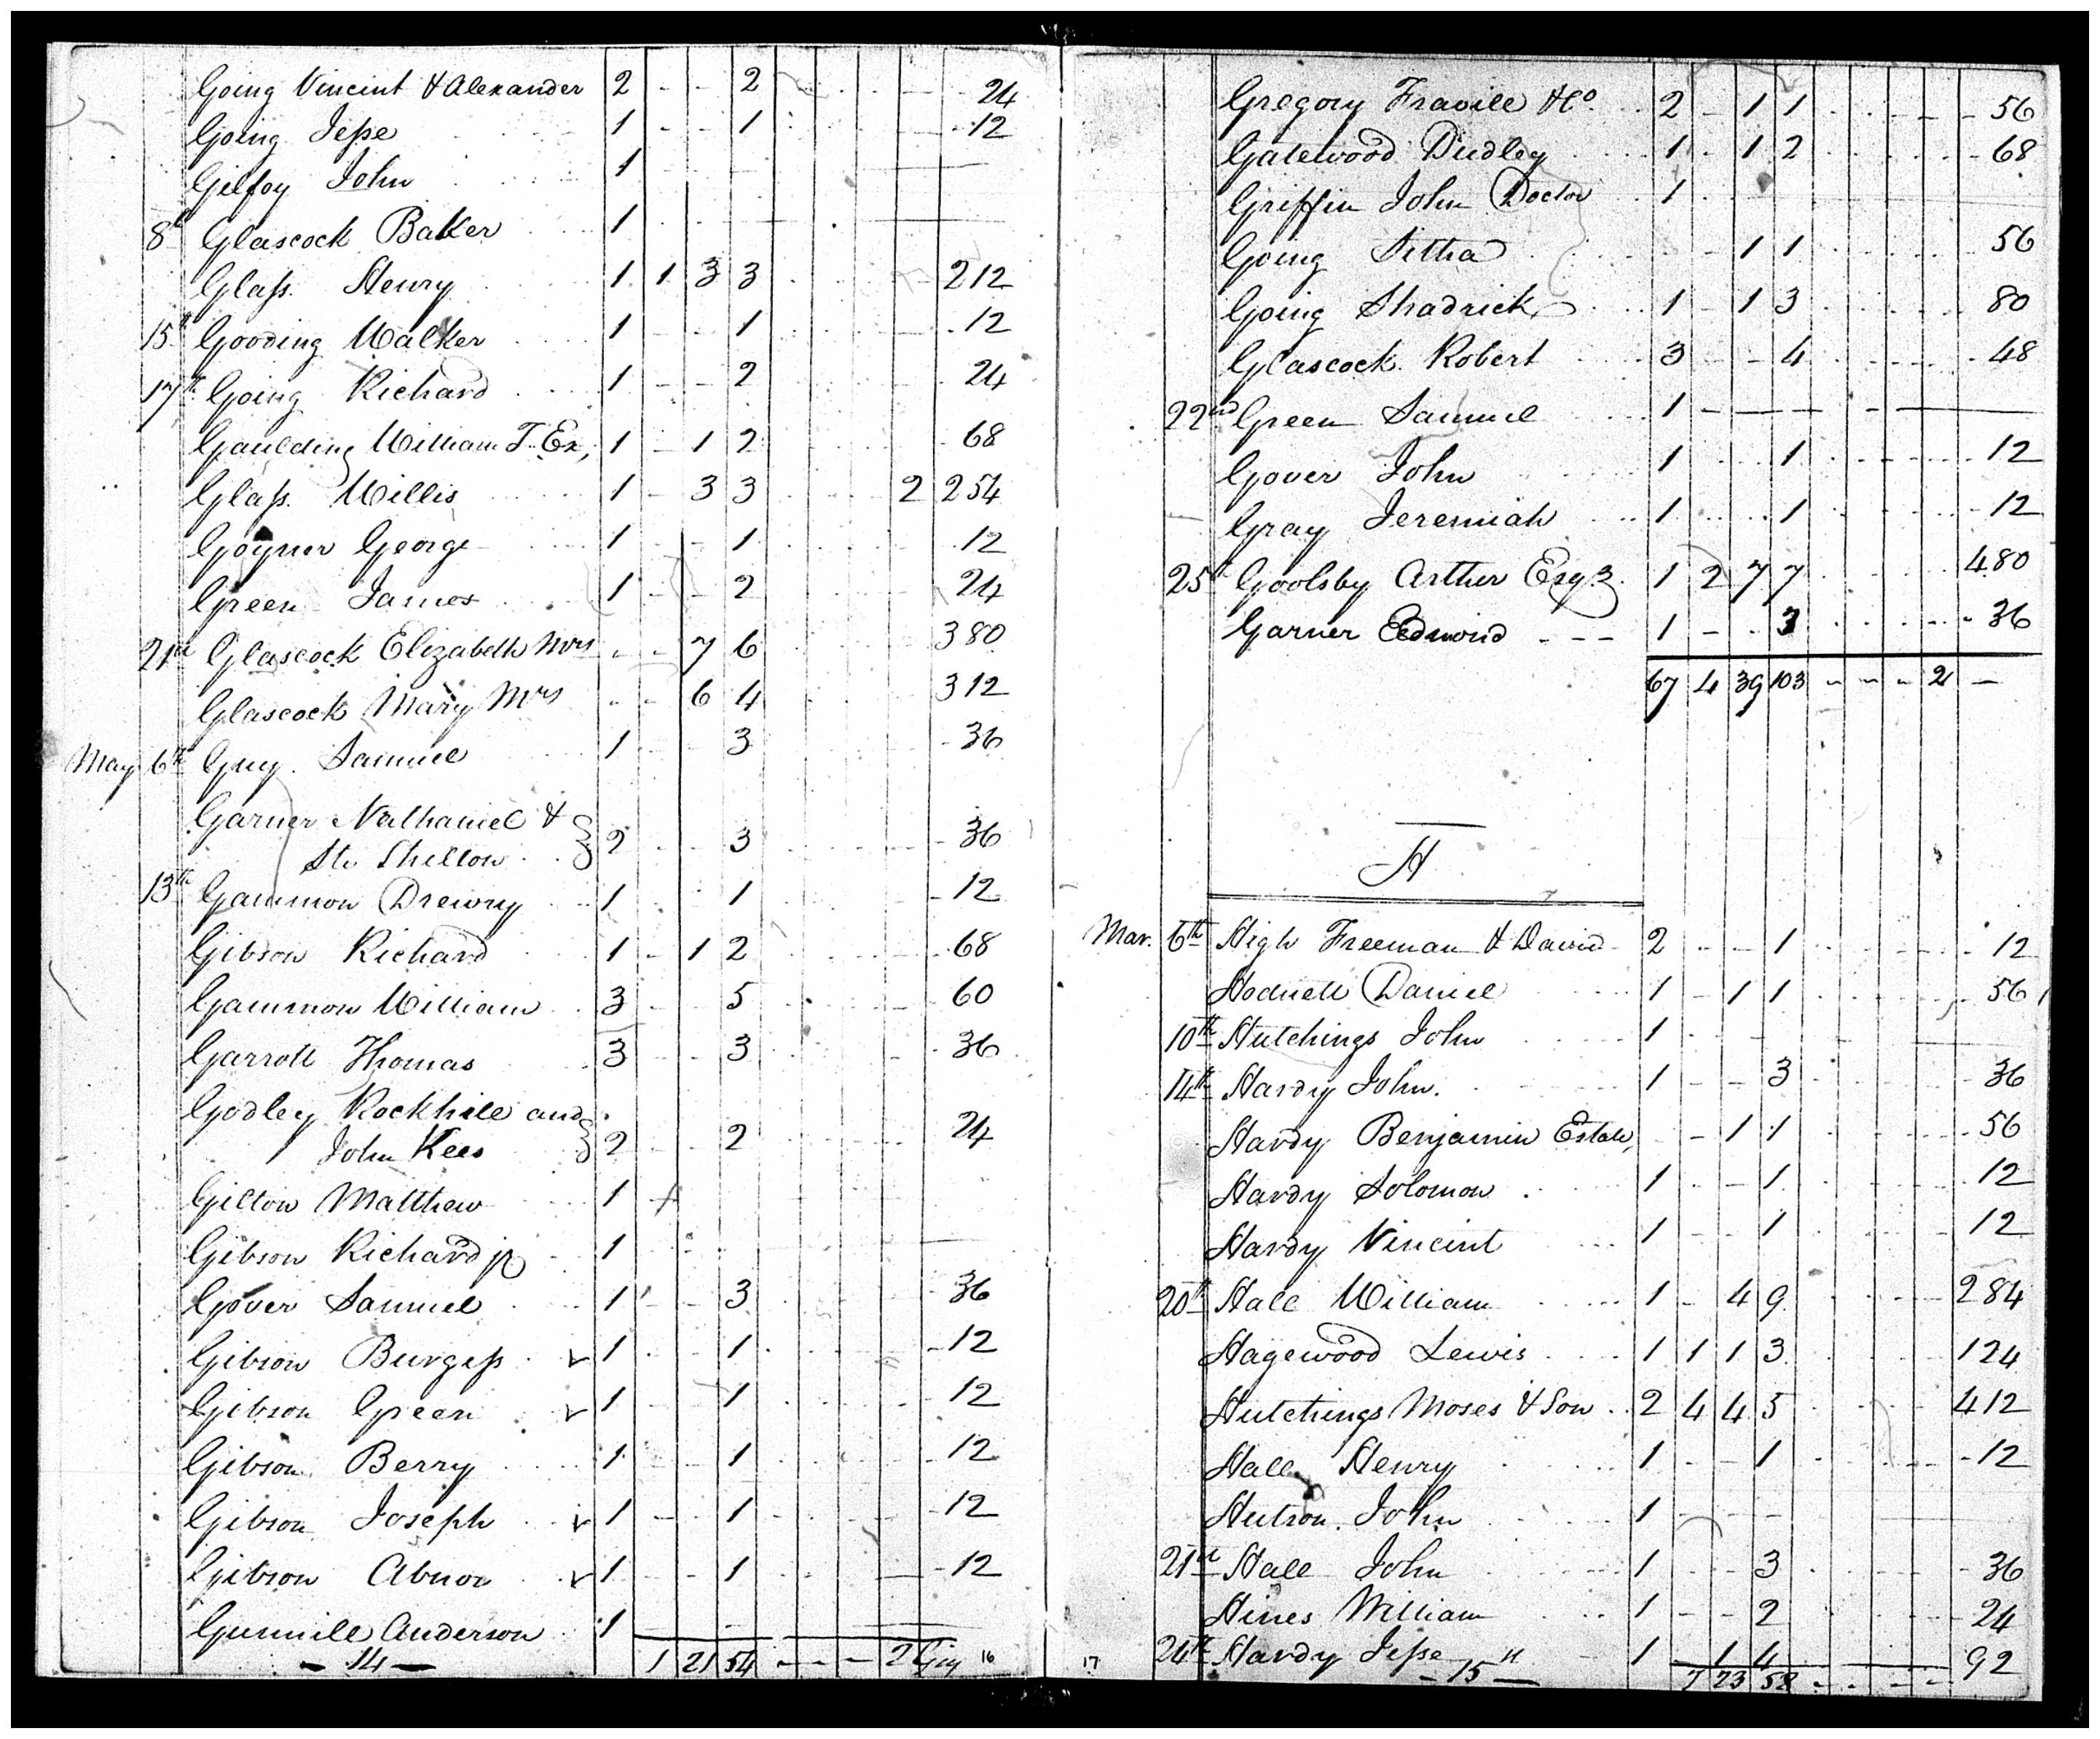 Going Vincint & Alexander 2 - - 2 - - - - 24
Going Jesse 1 - - 1 - - - - 12
Gilfoy John 1
8th Glascock Baker 1
Glass Henry 1 1 3 3 212
15th Gooding Walker 1 - - 1 12
17th Going Richard 1 - - 2 24
Gaulding William T. Ex, 1 - 1 2 68
Glass Willis 1 - 3 3 2 254
George 1 - - 1 12
Green James 1 - - 2 24
21st Glascock Elizabeth Mrs - - 7 6 380
Glascock Mary Mrs - - 6 4 312
May 6th Guy Samuel 1 - - 3 36
Garner Nathaniel &
Shelton 2 - - 3 36
13th Gammon Drewry 1 1 12
Gibson Richard 1 - 1 2 68
Gammon William 3 5 60
Garrott Thomas 3 - - 3 36
Godley Rockhill and
John Kees 2 - - 2 24
Gilton Matthew 1
Gibson Richard jr 1
Gover Samuel 1 - - 3 36
Gibson Burgess v 1 - - 1 12
Gibson Green v 1 - - 1 12
Gibson Berry 1 - - 1 12
Gibson Joseph v 1 - - 1 12
Gibson Abnor v 1 - - 1 12
Gunnill Anderson 1 - - -
- 14 - 1 21 54 - - - 2 16
Gregory Fravile & Co. 2 - 1 1 56
Gatewood Dudley 1 - 1 2 68
Griffin John Doctor 1
Going Sitha - - 1 1 56
Going Shadrick 1 - 1 3 80
Glascock Robert 3 - - 4 48
22nd Green Samuel 1 - - -
Gover John 1 - - 1 12
Gray Jeremiah 1 - - 1 12
25th Goolsby Arthur Esqr. 1 2 7 7 480
Garner Edmond - - - 1 - - 3 36
67 4 39 103 - - - 2 -
H
Mar. 6th High Freeman & David 2 - - 1 12
Hodnett Daniel 1 - 1 1 56
10th Hutchings John 1
14th Hardy John. 1 - - 3 36
Hardy Benjamin Estate, - 1 1 56
Hardy Solomon 1 - - 1 12
Hardy Vincint 1 - - 1 12
20th Hall William 1 - 4 9 284
Hagewood Lewis 1 1 1 3 124
Hutchings Moses & Son 2 4 4 5 412
Hall Henry 1 - - 1 12
Hutson John 1 - - -
21st Hall John 1 - - 3 36
Hines William 1 - - 2 24
24th Hardy Jesse 1 1 4 92
17 - 15 - 7 23 58 - - - -